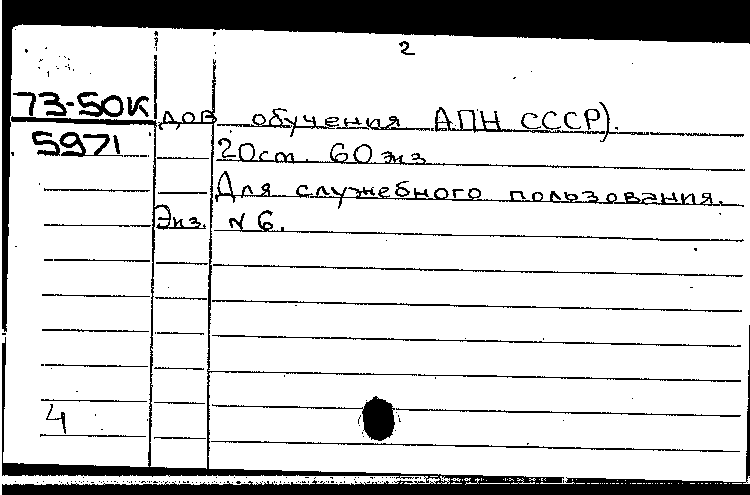 2
73-50К дов обучения АПН СССР).
5971 20 ст. 60 экз
Для служебного пользования.
Экз. N 6.
4